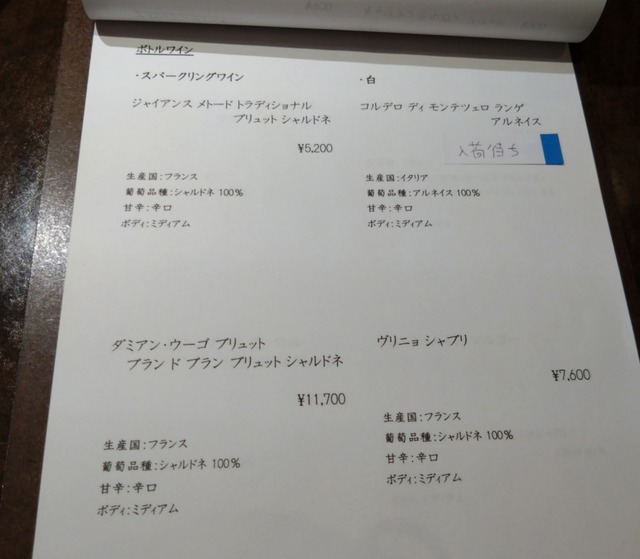 ボトルワイン
・スパークリングワイン
ジャイアンス メトード トラディショナル
ブリュット シャルドネ
¥5,200
生産国:フランス
葡萄品種:シャルドネ 100%
甘辛:辛口
ボディ:ミディアム
ダミアン・ウーゴ ブリュット
ブラン ド ブラン ブリュット シャルドネ
¥11,700
生産国:フランス
葡萄品種:シャルドネ 100%
甘辛:辛口
ボディ:ミディアム
・白
コルデロ ディ モンテツェロ ランゲ
アルネイス
入荷待ち
生産国:イタリア
葡萄品種:アルネイス 100%
甘辛:辛口
ボディ:ミディアム
ヴリニョ シャブリ
¥7,600
生産国:フランス
葡萄品種:シャルドネ 100%
甘辛:辛口
ボディ:ミディアム